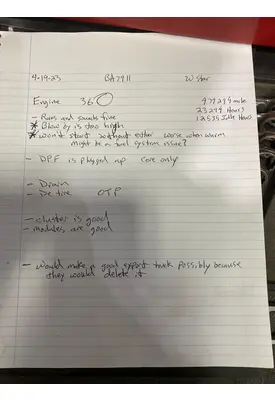 4-19-23 BA7911 W Star
Engine 360
479279 mile
- Runs and sounds fine
23294 Hours
* Blow by is zero high
12535 Idle Hours
* won't start without ether worse when warm
might be a fuel system issue?
- DPF is plugged up Core only
- Drain
- De tire OTP
- cluster is good
- modules are good
- would make a good export truck possibly because
they would delete it